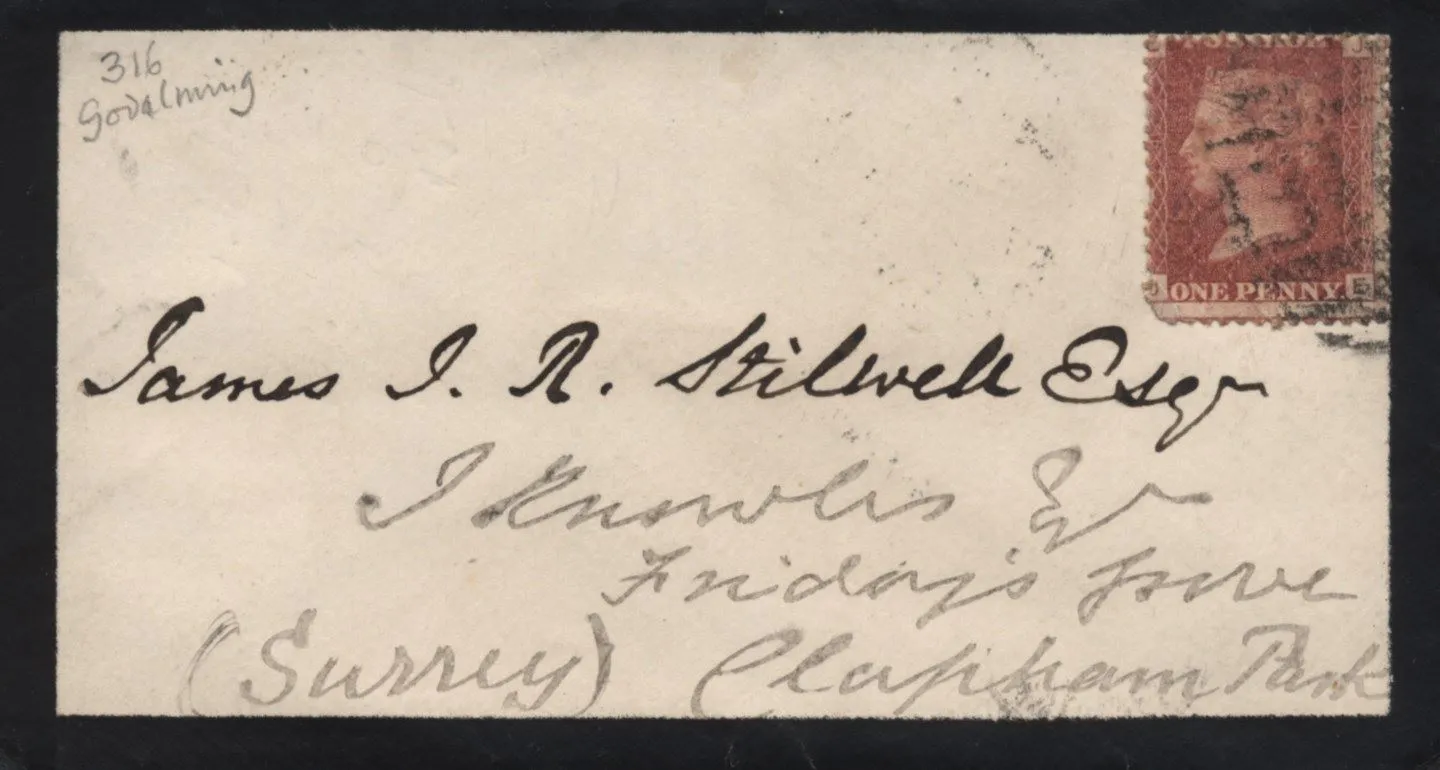 316
Godalming
POSTAGE
J
ONE PENNY.
E
James J. R. Stilwell Esqr
J Knowles Esqr
Friday's Grove
(Surrey) Clapham Park